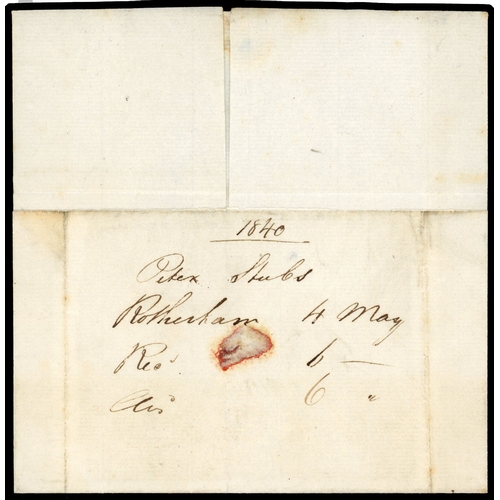 1840
Peter Stubs
Rotherham 4 May
Recd 6 —
Ansd 6 "